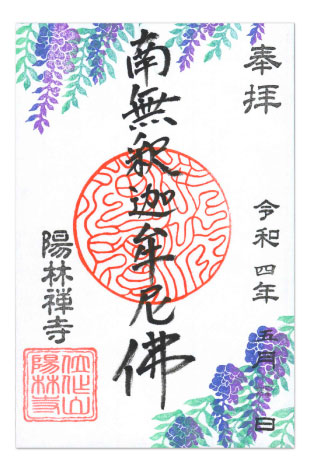 奉拝
令和四年 五月 日
南無釈迦牟尼佛
陽林禅寺
陽林寺